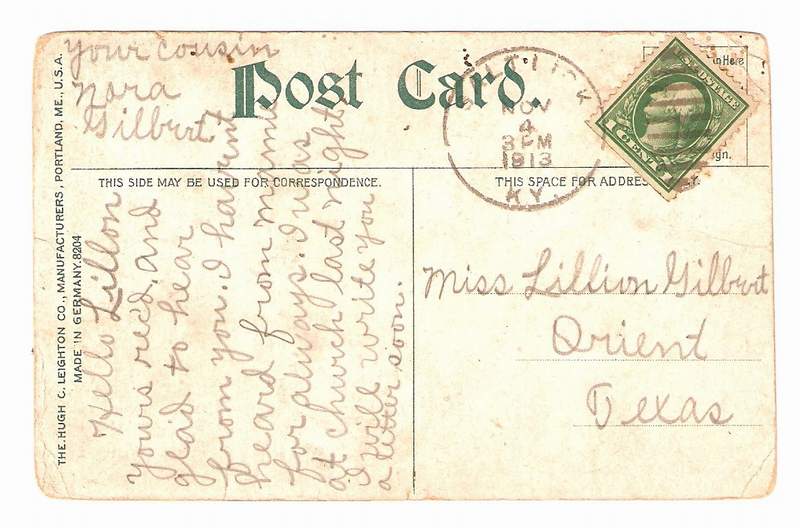 Post Card.
THIS SIDE MAY BE USED FOR CORRESPONDENCE.
THIS SPACE FOR ADDRES
THE HUGH C. LEIGHTON CO., MANUFACTURERS, PORTLAND, ME., U.S.A.
MADE IN GERMANY. 8204
NOV
4
3 PM
1913
KY.
U.S. POSTAGE
1 CENT 1
Hello Lillon
yours rec'd, and
glad to hear
from you. I havent
heard from mame
for always. I was
at church last night
I will write you
a letter soon.
your cousin
Nora
Gilbert
Miss Lillion Gilbert
Orient
Texas